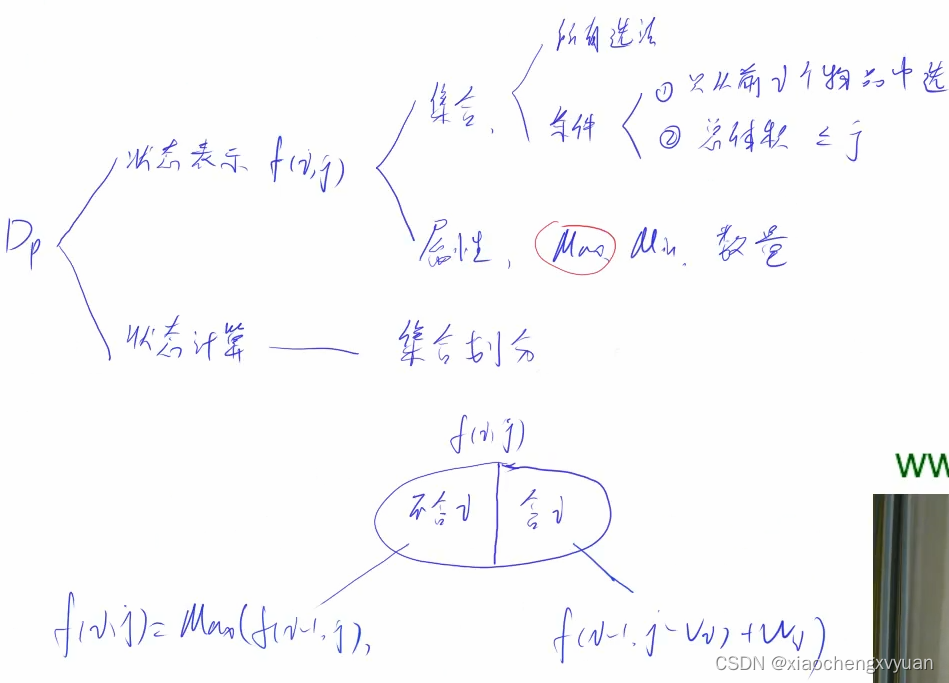 所有选法
集合,
条件
① 只从前i个物品中选
② 总体积 ≤ j
状态表示 f(i,j)
Dp
属性, Max Min. 数量
状态计算 —— 集合划分
f(i,j)
不含i 含i
f(i,j)= Max(f(i-1,j), f(i-1, j-Vi)+Wi)
WW
CSDN @xiaochengxvyuan